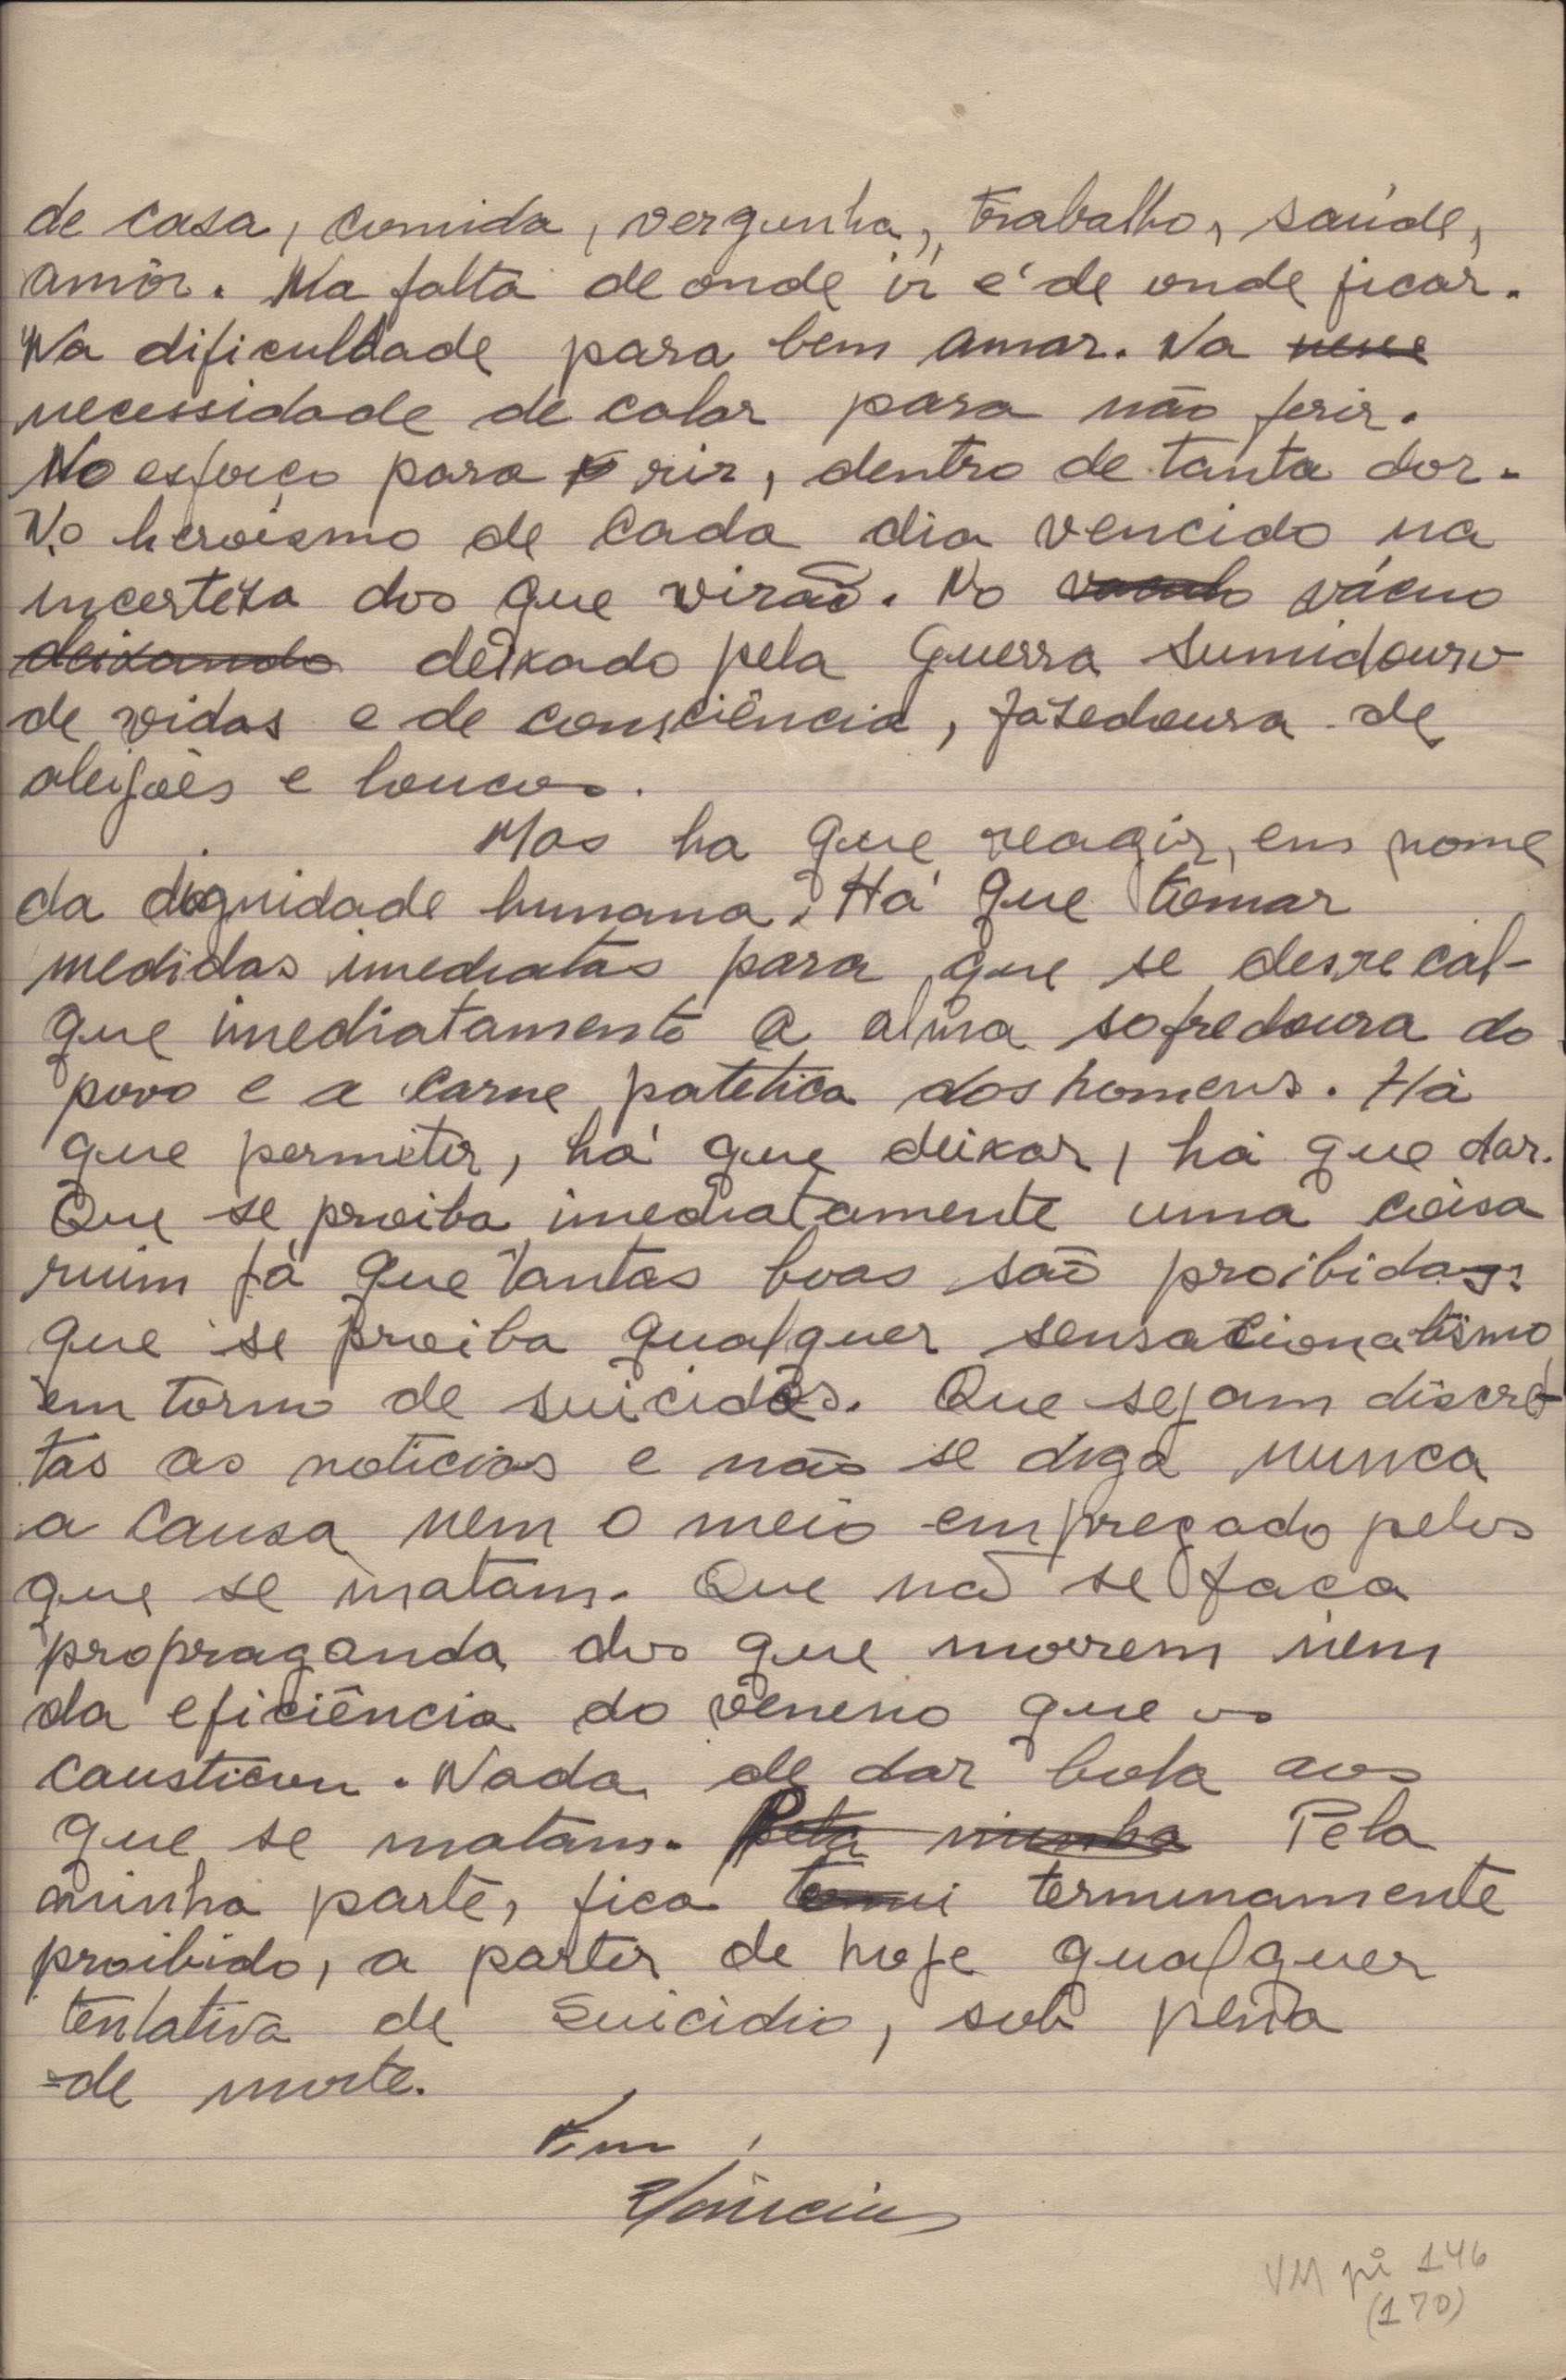 de casa, comida, vergonha, trabalho, saúde,
amôr. Na falta de onde ir e de onde ficar.
Na dificuldade para bem amar. Na
necessidade de calar para não ferir.
No esforço para rir, dentro de tanta dor.
No heroísmo de cada dia vencido na
incerteza dos que virão. No vácuo
deixando deixado pela Guerra sumidouro
de vidas e de consciência, fazedoura de
aleijões e loucos.
Mas ha que reagir, em nome
da dignidade humana. Há que tomar
medidas imediatas para que se desrecal-
que imediatamente a alma sofredoura do
povo e a carne patetica dos homens. Há
que permitir, há que deixar, há que dar.
Que se proiba imediatamente uma coisa
ruim já que tantas boas são proibidas:
que se proiba qualquer sensacionalismo
em torno de suicidas. Que sejam discre-
tas as noticias e não se diga nunca
a causa nem o meio empregado pelos
que se matam. Que não se faça
propraganda dos que morrem nem
da eficiência do veneno que os
causticou. Nada de dar bola aos
que se matam. Pela minha Pela
minha parte, fica terminamente
proibido, a partir de hoje qualquer
tentativa de suicidio, sob pena
de morte.
Vinicius
VM pi 146
(170)